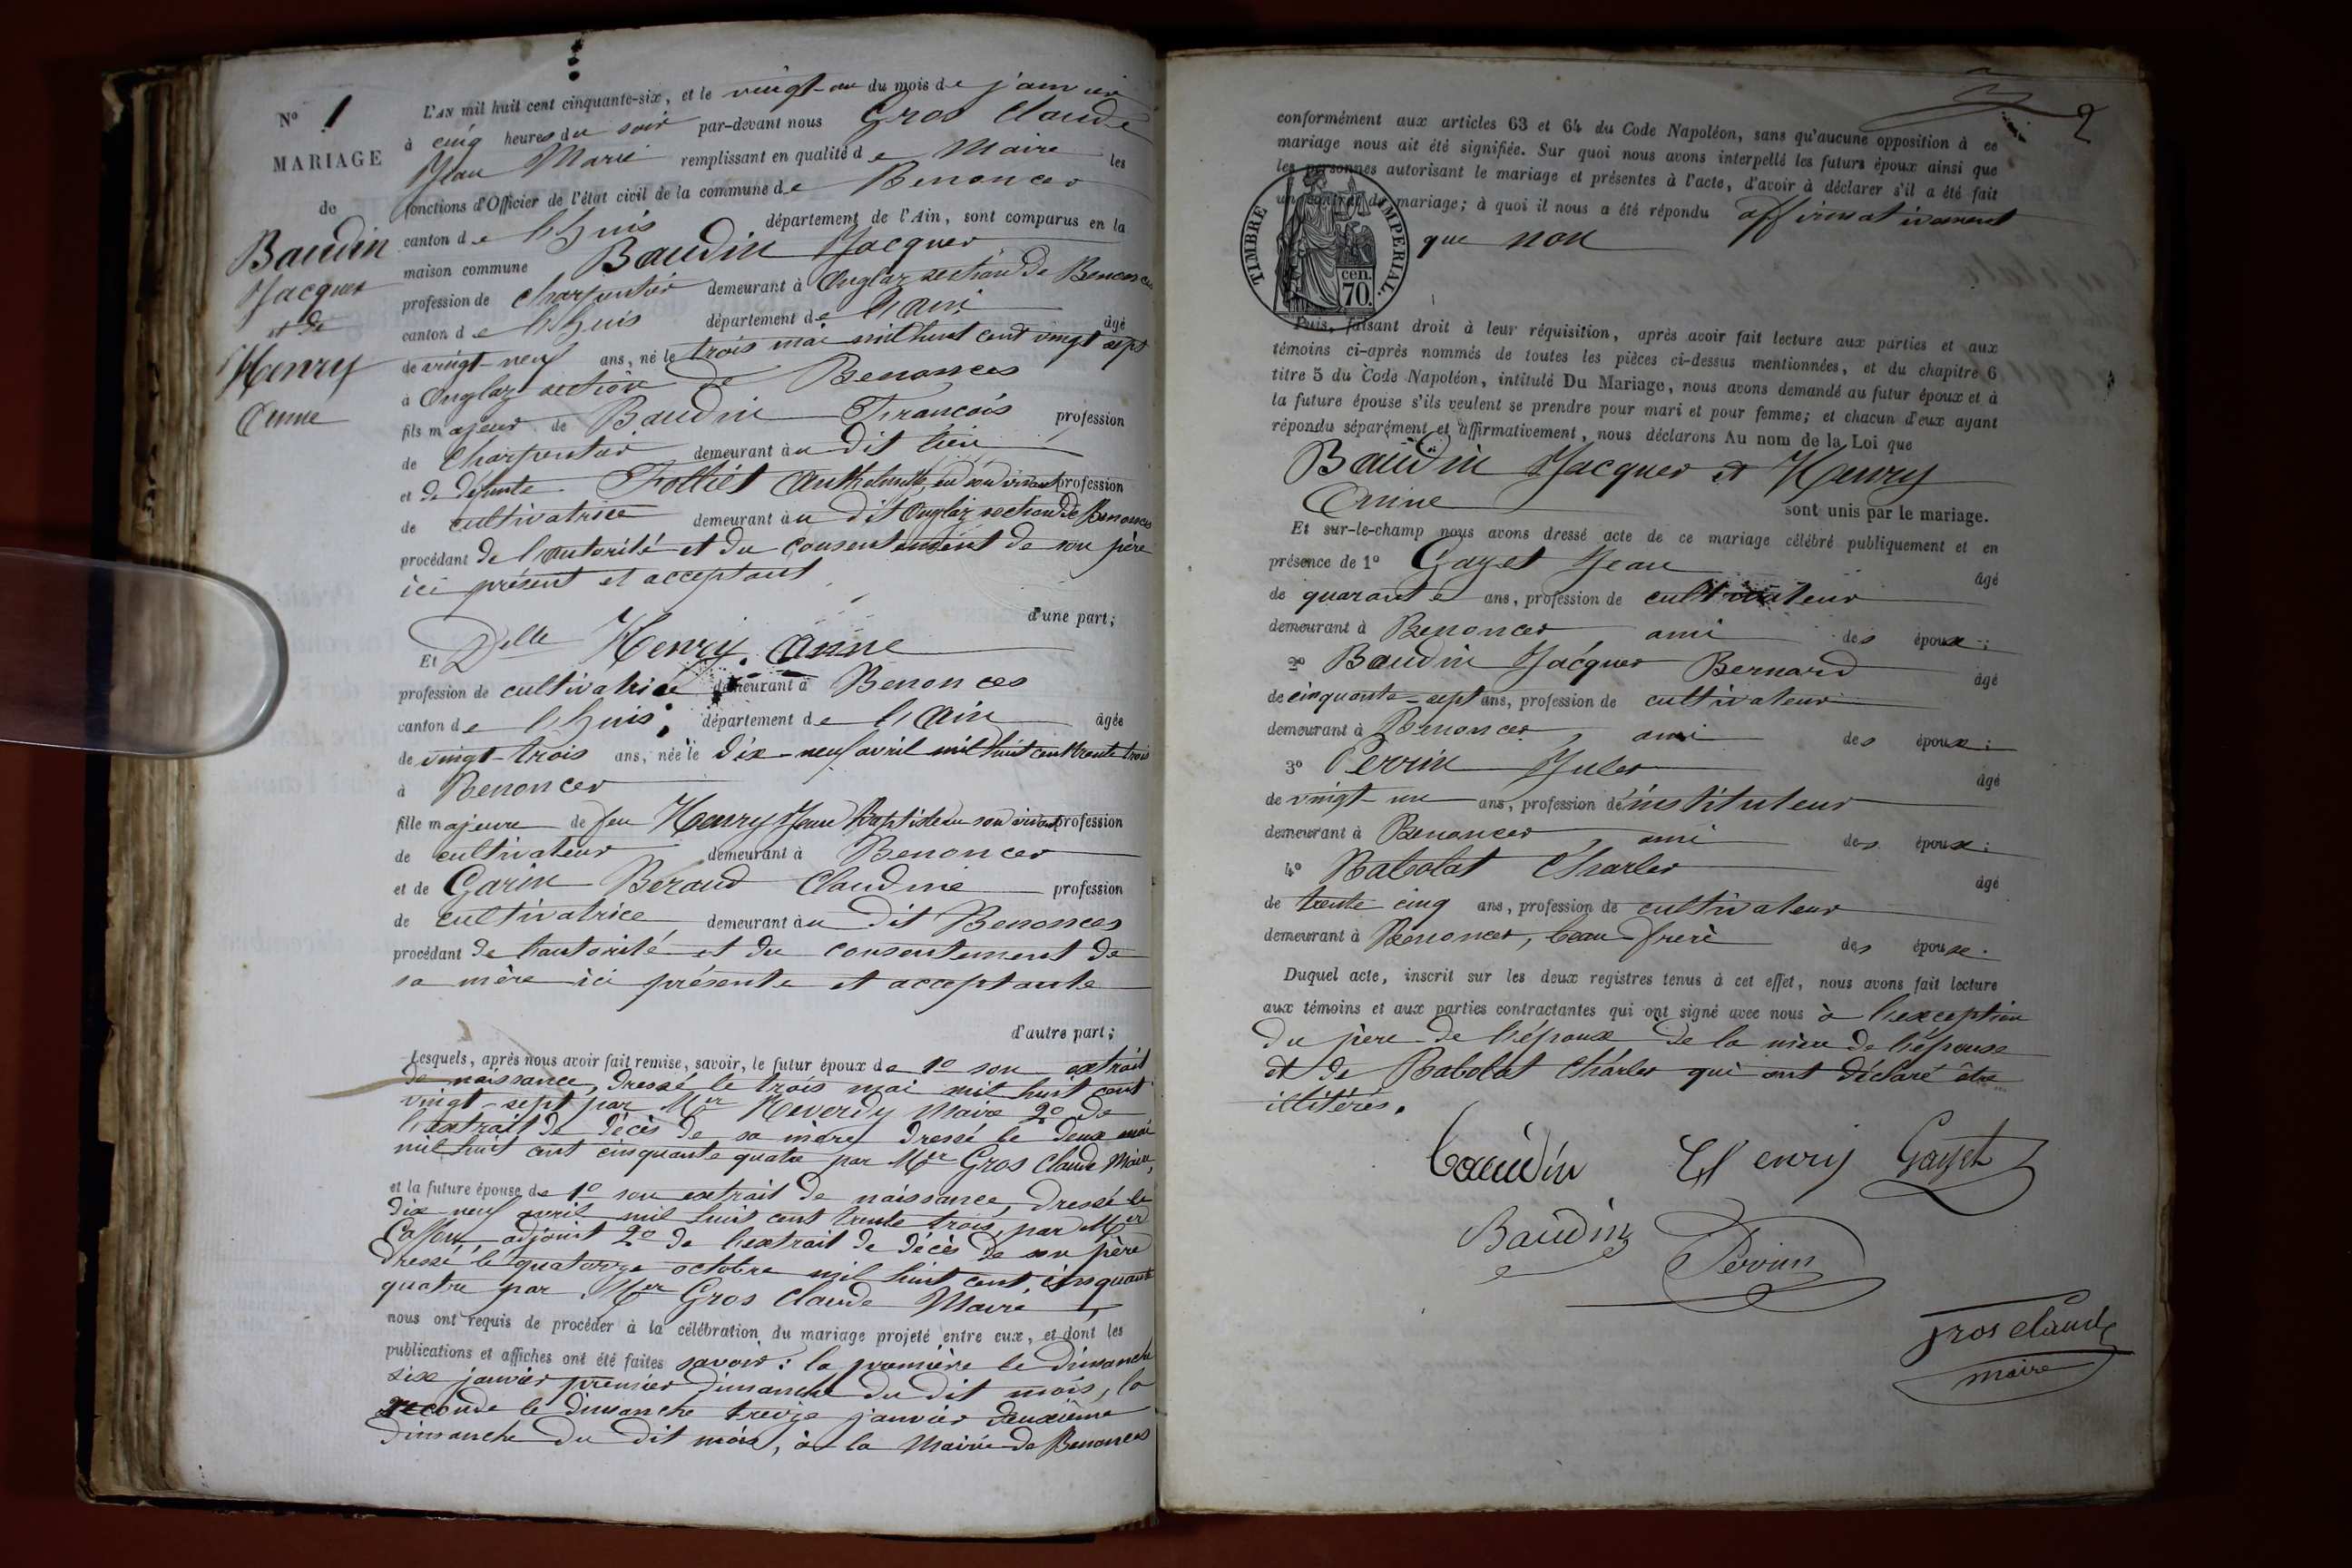 N° 1
MARIAGE
de
Baudin
Jacques
et de
Henry
Anne
L'AN mil huit cent cinquante-six, et le vingt-un du mois de janvier
à cinq heures du soir par-devant nous Gros Claude
Jean Marie remplissant en qualité de Maire les
fonctions d'Officier de l'état civil de la commune de Benonces
canton de Lhuis département de l'Ain, sont comparus en la
maison commune Baudin Jacques
profession de charpentier demeurant à Onglaz section de Benonces
canton de Lhuis département de l'ain âgé
de vingt-neuf ans, né le trois mai mil huit cent vingt sept
à Onglaz section de Benonces
fils majeur de Baudin François profession
de Charpentier demeurant au dit lieu
et de défunte Folliet Anthelmette en son vivant profession
de cultivatrice demeurant au dit Onglaz section de Benonces
procédant de l'autorité et du consentement de son père
ici présent et acceptant
d'une part;
Et Delle Henry Anne
profession de cultivatrice demeurant à Benonces
canton de Lhuis, département de l'Ain âgée
de vingt-trois ans, née le dix-neuf avril mil huit cent trente trois
à Benonces
fille majeure de feu Henry Jean Baptiste en son vivant profession
de cultivateur demeurant à Benonces
et de Garin Beraud Claudine profession
de cultivatrice demeurant au dit Benonces
procédant de l'autorité et du consentement de
sa mère ici présente et acceptante
d'autre part;
Lesquels, après nous avoir fait remise, savoir, le futur époux de 1° son extrait
de naissance, dressé le trois mai mil huit cent
vingt-sept par Mer Reverdy Maire 2° de
l'extrait de décès de sa mère dressé le deux mai
mil huit cent cinquante quatre par Mer Gros Claude Maire,
et la future épouse de 1° son extrait de naissance, dressé le
dix neuf avril mil huit cent trente trois, par Mer
adjoint 2° de l'extrait de décès de son père
dressé le quatorze octobre mil huit cent cinquante
quatre par Mer Gros Claude Maire
nous ont requis de procéder à la célébration du mariage projeté entre eux, et dont les
publications et affiches ont été faites savoir : la première le dimanche
six janvier premier dimanche du dit mois, la
seconde le dimanche treize janvier deuxième
dimanche du dit mois, à la Mairie de Benonces
2
conformément aux articles 63 et 64 du Code Napoléon, sans qu'aucune opposition à ce
mariage nous ait été signifiée. Sur quoi nous avons interpellé les futurs époux ainsi que
les personnes autorisant le mariage et présentes à l'acte, d'avoir à déclarer s'il a été fait
un contrat de mariage; à quoi il nous a été répondu affirmativement
que non
TIMBRE IMPERIAL.
cen.
70.
Puis, faisant droit à leur réquisition, après avoir fait lecture aux parties et aux
témoins ci-après nommés de toutes les pièces ci-dessus mentionnées, et du chapitre 6
titre 5 du Code Napoléon, intitulé Du Mariage, nous avons demandé au futur époux et à
la future épouse s'ils veulent se prendre pour mari et pour femme; et chacun d'eux ayant
répondu séparément et affirmativement, nous déclarons Au nom de la Loi que
Baudin Jacques et Henry
Anne
sont unis par le mariage.
Et sur-le-champ nous avons dressé acte de ce mariage célébré publiquement et en
présence de 1° Gayet Jean âgé
de quarante ans, profession de cultivateur
demeurant à Benonces, ami des époux;
2° Baudin Jacques Bernard âgé
de cinquante-sept ans, profession de cultivateur
demeurant à Benonces, ami des époux;
3° Perrin Jules âgé
de vingt-un ans, profession d'instituteur
demeurant à Benonces, ami des époux;
4° Rabolat Charles âgé
de trente cinq ans, profession de cultivateur
demeurant à Benonces, beau-frère des époux.
Duquel acte, inscrit sur les deux registres tenus à cet effet, nous avons fait lecture
aux témoins et aux parties contractantes qui ont signé avec nous à l'exception
du père de l'époux de la mère de l'épouse
et de Rabolat Charles qui ont déclaré être
illitérés.
baudin Henry Gayet
Baudin Perrin
gros claude
maire